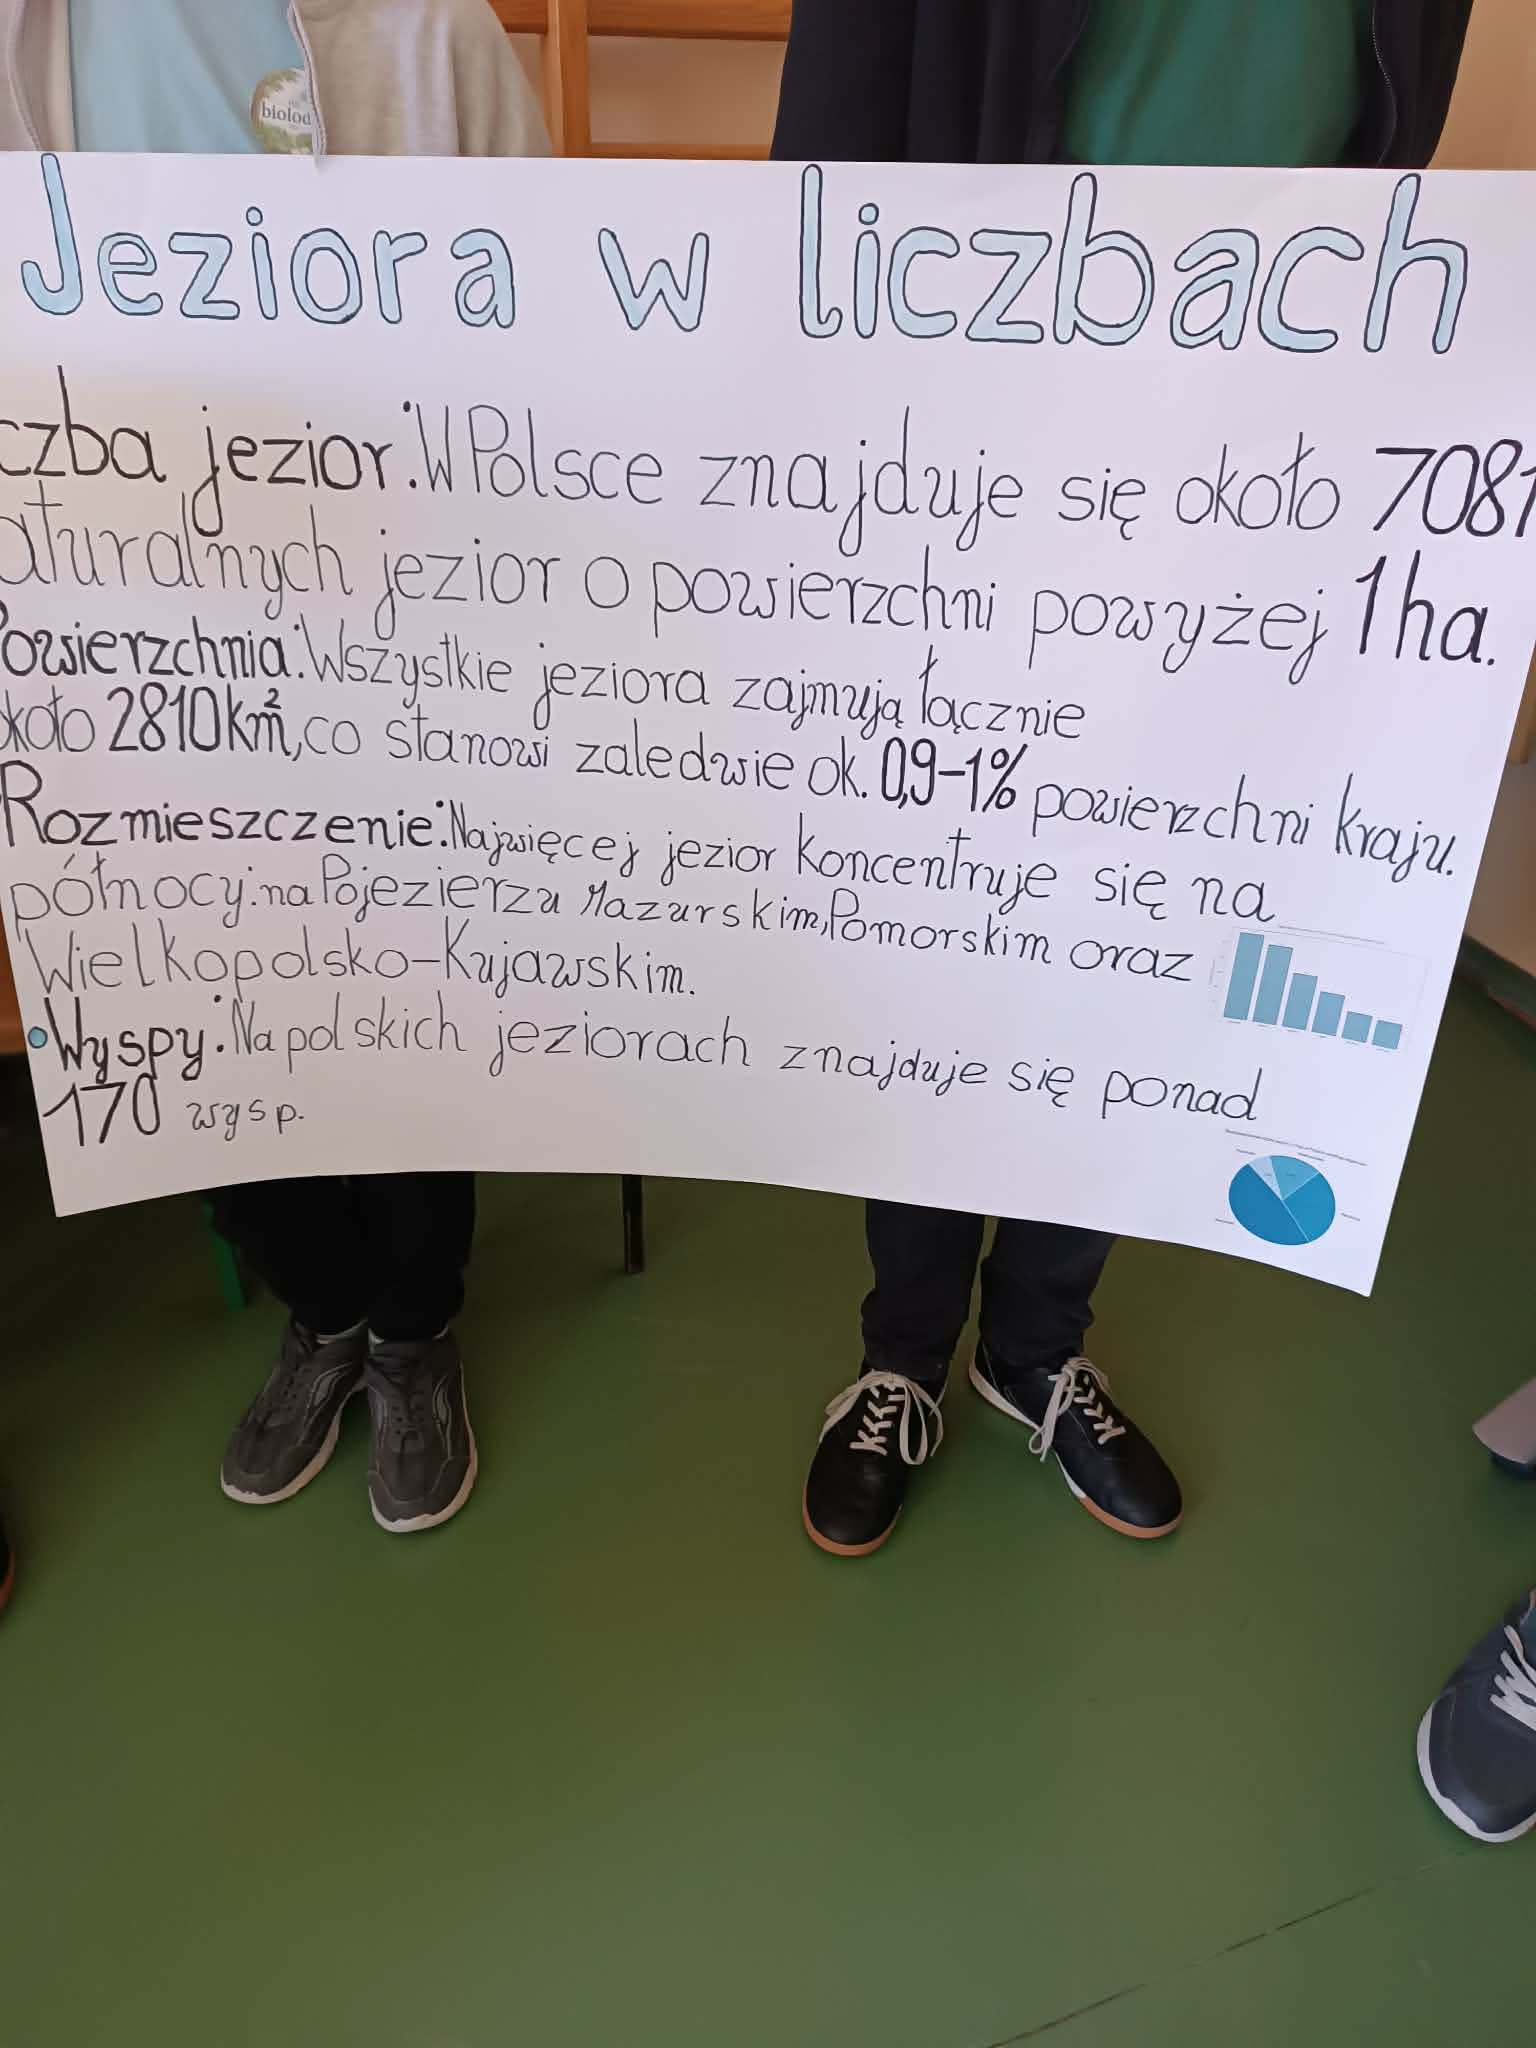 biolod
Jeziora w liczbach
czba jezior: W Polsce znajduje się około 7081
aturalnych jezior o powierzchni powyżej 1 ha.
Powierzchnia: Wszystkie jeziora zajmują łącznie
około 2810 km², co stanowi zaledwie ok. 0,9-1% powierzchni kraju.
Rozmieszczenie: Najwięcej jezior koncentruje się na
północy: na Pojezierzu Mazurskim, Pomorskim oraz
Wielkopolsko-Kujawskim.
• Wyspy: Na polskich jeziorach znajduje się ponad
170 wysp.